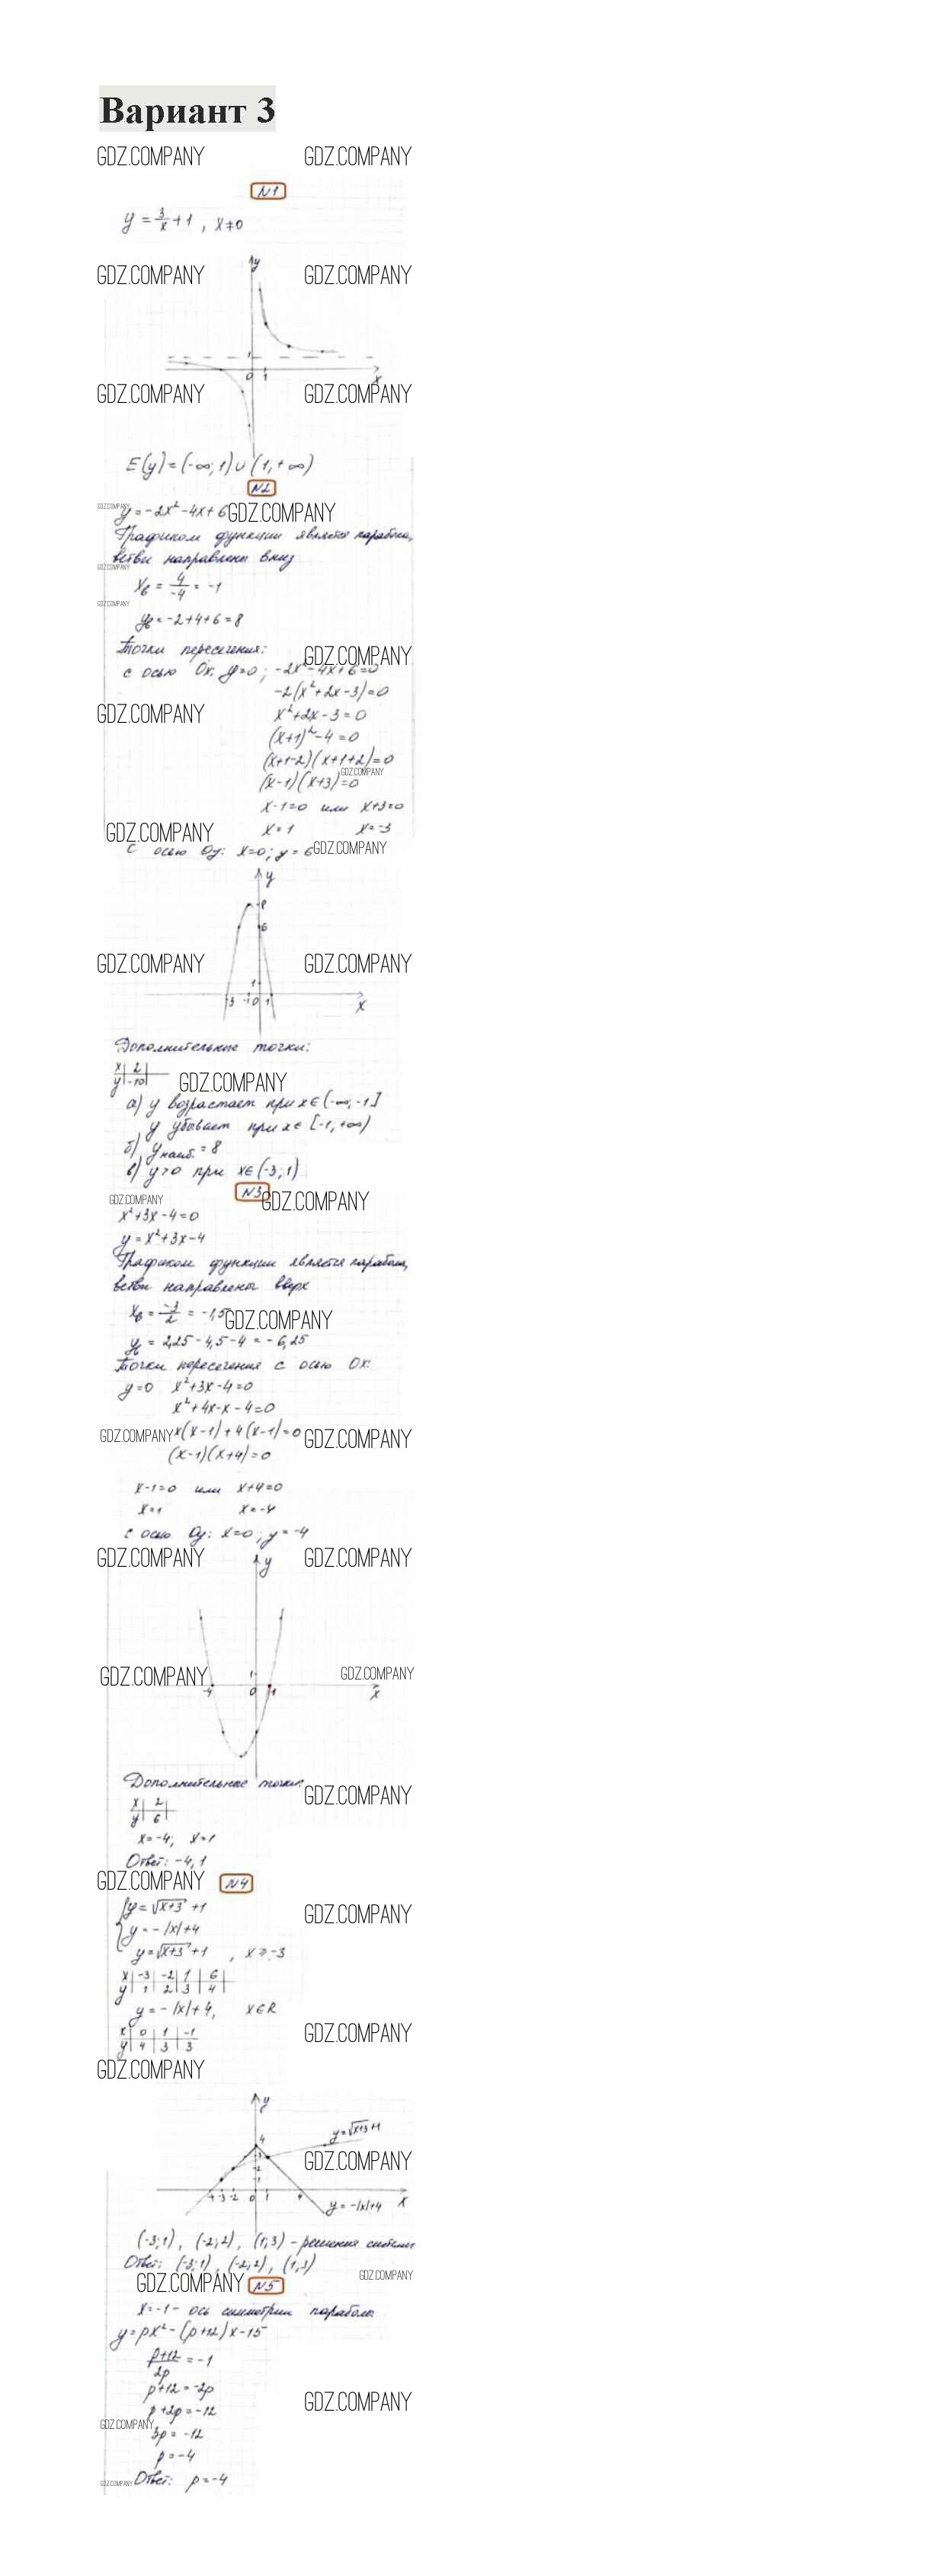 Вариант 3
GDZ.COMPANY GDZ.COMPANY
N1
y = 3/x + 1 , x ≠ 0
y
GDZ.COMPANY GDZ.COMPANY
1
0 1
x
GDZ.COMPANY GDZ.COMPANY
E(y) = (-∞; 1) ∪ (1, +∞)
N2
GDZ.COMPANY y = -2x² - 4x + 6 GDZ.COMPANY
Графиком функции является парабола,
ветви направлены вниз
GDZ.COMPANY
x_в = 4/-4 = -1
GDZ.COMPANY
y_в = -2+4+6 = 8
Точки пересечения:
GDZ.COMPANY
с осью Ox: y=0 ; -2x² - 4x + 6 = 0
-2(x² + 2x - 3) = 0
GDZ.COMPANY x² + 2x - 3 = 0
(x+1)² - 4 = 0
(x+1-2)(x+1+2) = 0
GDZ.COMPANY
(x-1)(x+3) = 0
x-1=0 или x+3=0
GDZ.COMPANY x = 1 x = -3
с осью Oy: x=0 ; y = 6 GDZ.COMPANY
y
8
6
GDZ.COMPANY GDZ.COMPANY
1
-3 -1 0 1
x
Дополнительные точки:
x | 2
y | -10
GDZ.COMPANY
а) y возрастает при x ∈ (-∞, -1]
y убывает при x ∈ [-1, +∞)
б) y наиб. = 8
в) y>0 при x ∈ (-3; 1)
N3
GDZ.COMPANY GDZ.COMPANY
x² + 3x - 4 = 0
y = x² + 3x - 4
Графиком функции является парабола,
ветви направлены вверх
x_в = -3/2 = -1,5 GDZ.COMPANY
y_в = 2,25 - 4,5 - 4 = -6,25
Точки пересечения с осью Ox:
y=0 x² + 3x - 4 = 0
x² + 4x - x - 4 = 0
GDZ.COMPANY x(x-1) + 4(x-1) = 0 GDZ.COMPANY
(x-1)(x+4) = 0
x-1=0 или x+4=0
x=1 x=-4
с осью Oy: x=0 ; y = -4
GDZ.COMPANY GDZ.COMPANY
y
GDZ.COMPANY GDZ.COMPANY
1
-4 0 1
x
Дополнительные точки:
GDZ.COMPANY
x | 2
y | 6
x = -4; x = 1
Ответ: -4, 1
GDZ.COMPANY N4
{ y = √(x+3) + 1
y = -|x| + 4
GDZ.COMPANY
y = √(x+3) + 1 , x ≥ -3
x | -3 | -2 | 1 | 6
y | 1 | 2 | 3 | 4
y = -|x| + 4, x ∈ R
x | 0 | 1 | -1
y | 4 | 3 | 3
GDZ.COMPANY
GDZ.COMPANY
y
y = √(x+3) + 1
4
3
2
1
GDZ.COMPANY
-4 -3 -2 0 1 4
y = -|x| + 4
x
(-3; 1), (-2; 2), (1; 3) - решения системы
Ответ: (-3; 1), (-2; 2), (1; 3)
GDZ.COMPANY
GDZ.COMPANY N5
x = -1 - ось симметрии параболы
y = px² - (p+12)x - 15
(p+12)/2p = -1
p+12 = -2p
GDZ.COMPANY
p + 2p = -12
GDZ.COMPANY
3p = -12
p = -4
GDZ.COMPANY Ответ: p = -4